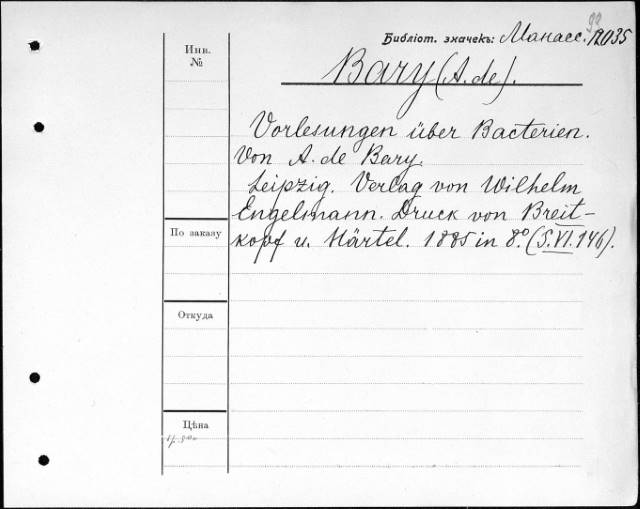 Библіот. значекъ: Манасс. 12035
Инв.
№
Bary (A. de).
Vorlesungen über Bacterien.
Von A. de Bary.
Leipzig. Verlag von Wilhelm
Engelmann. Druck von Breit-
kopf u. Härtel. 1885 in 8º. (S. VI. 146).
По заказу
Откуда
Цѣна